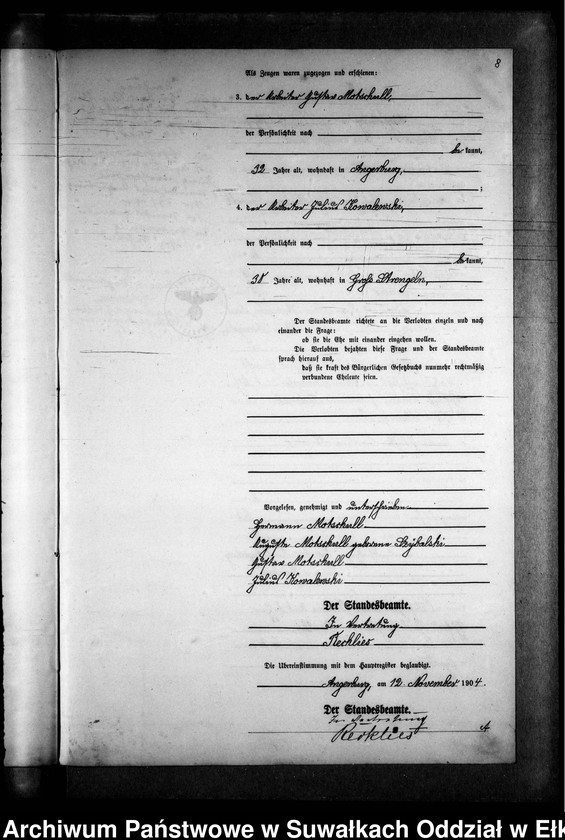 8
Als Zeugen waren zugezogen und erschienen:
3. der Arbeiter Gustav Motschull,
der Persönlichkeit nach
be kannt,
32 Jahre alt, wohnhaft in Angerburg,
;
4. der Arbeiter Julius Kowalewski,
der Persönlichkeit nach
be kannt,
38 Jahre alt, wohnhaft in Groß Strengeln,
Der Standesbeamte richtete an die Verlobten einzeln und nach
einander die Frage:
ob sie die Ehe mit einander eingehen wollen.
Die Verlobten bejahten diese Frage und der Standesbeamte
sprach hierauf aus,
daß sie kraft des Bürgerlichen Gesetzbuchs nunmehr rechtmäßig
verbundene Eheleute seien.
Vorgelesen, genehmigt und unterschrieben
Hermann Motschull
Auguste Motschull geborene
Gustav Motschull
Julius Kowalewski
Der Standesbeamte.
In Vertretung
Recklies
Die Übereinstimmung mit dem Hauptregister beglaubigt.
Angerburg, am 12. November 1904.
Der Standesbeamte.
In Vertretung
Recklies
Archiwum Państwowe w Suwałkach Oddział w Ełk